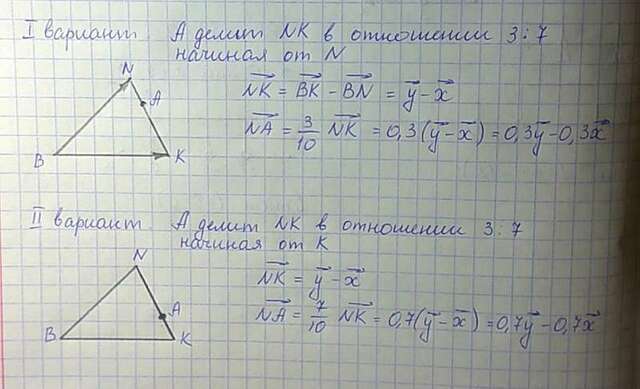 I вариант А делит NK в отношении 3:7
начиная от N
N
A
B
K
NK⃗ = BK⃗ - BN⃗ = y⃗ - x⃗
NA⃗ = 3/10 NK⃗ = 0,3(y⃗ - x⃗) = 0,3y⃗ - 0,3x⃗
II вариант А делит NK в отношении 3:7
начиная от K
N
A
B
K
NK⃗ = y⃗ - x⃗
NA⃗ = 7/10 NK⃗ = 0,7(y⃗ - x⃗) = 0,7y⃗ - 0,7x⃗